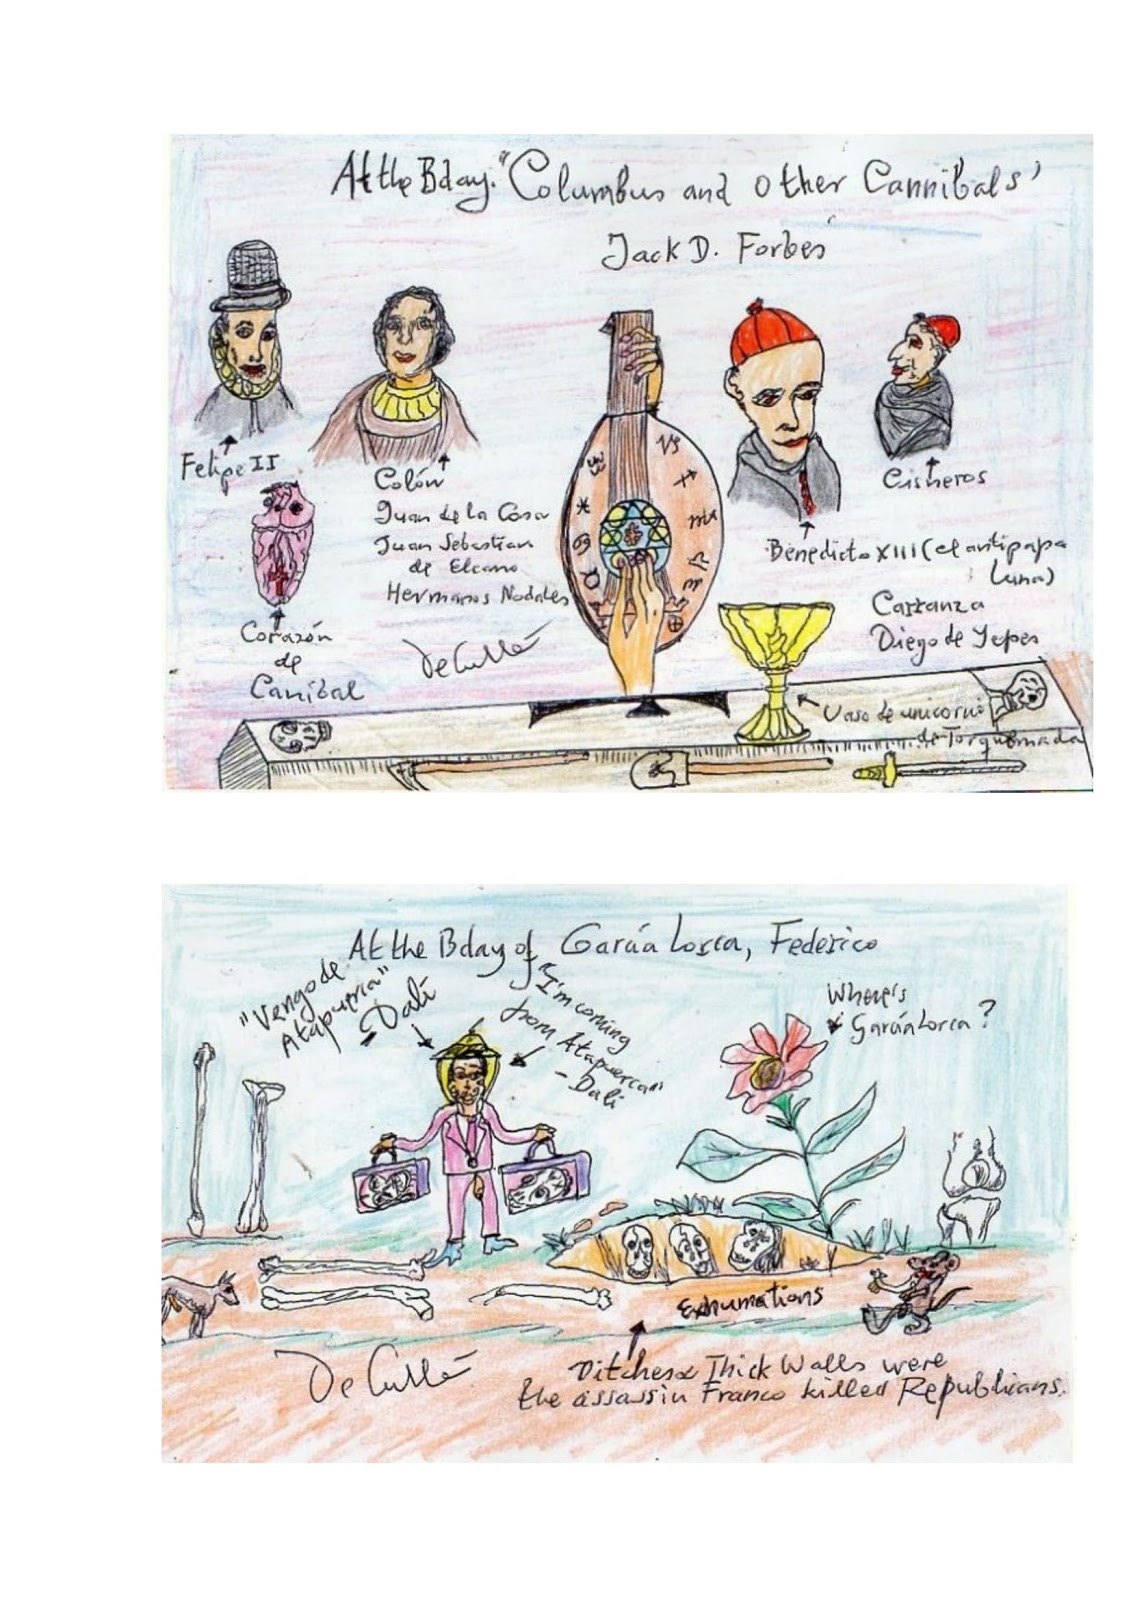 At the Bday. "Columbus and other Cannibals'
Jack D. Forbes
Felipe II
Colón
Juan de la Cosa
Juan Sebastian
de Elcano
Hermanos Nodales
Cisneros
Benedicto XIII (el antipapa
Luna)
Carranza
Diego de Yepes
Corazón
de
Canibal
De Cullá
Vaso de unicornio
de Torquemada
At the Bday of García Lorca, Federico
"Vengo de
Atapuerca"
- Dalí
"I'm coming
from Atapuerca"
- Dalí
Where's
García Lorca?
Exhumations
De Cullá
Ditches & Thick Walls were
the assassin Franco killed Republicans.